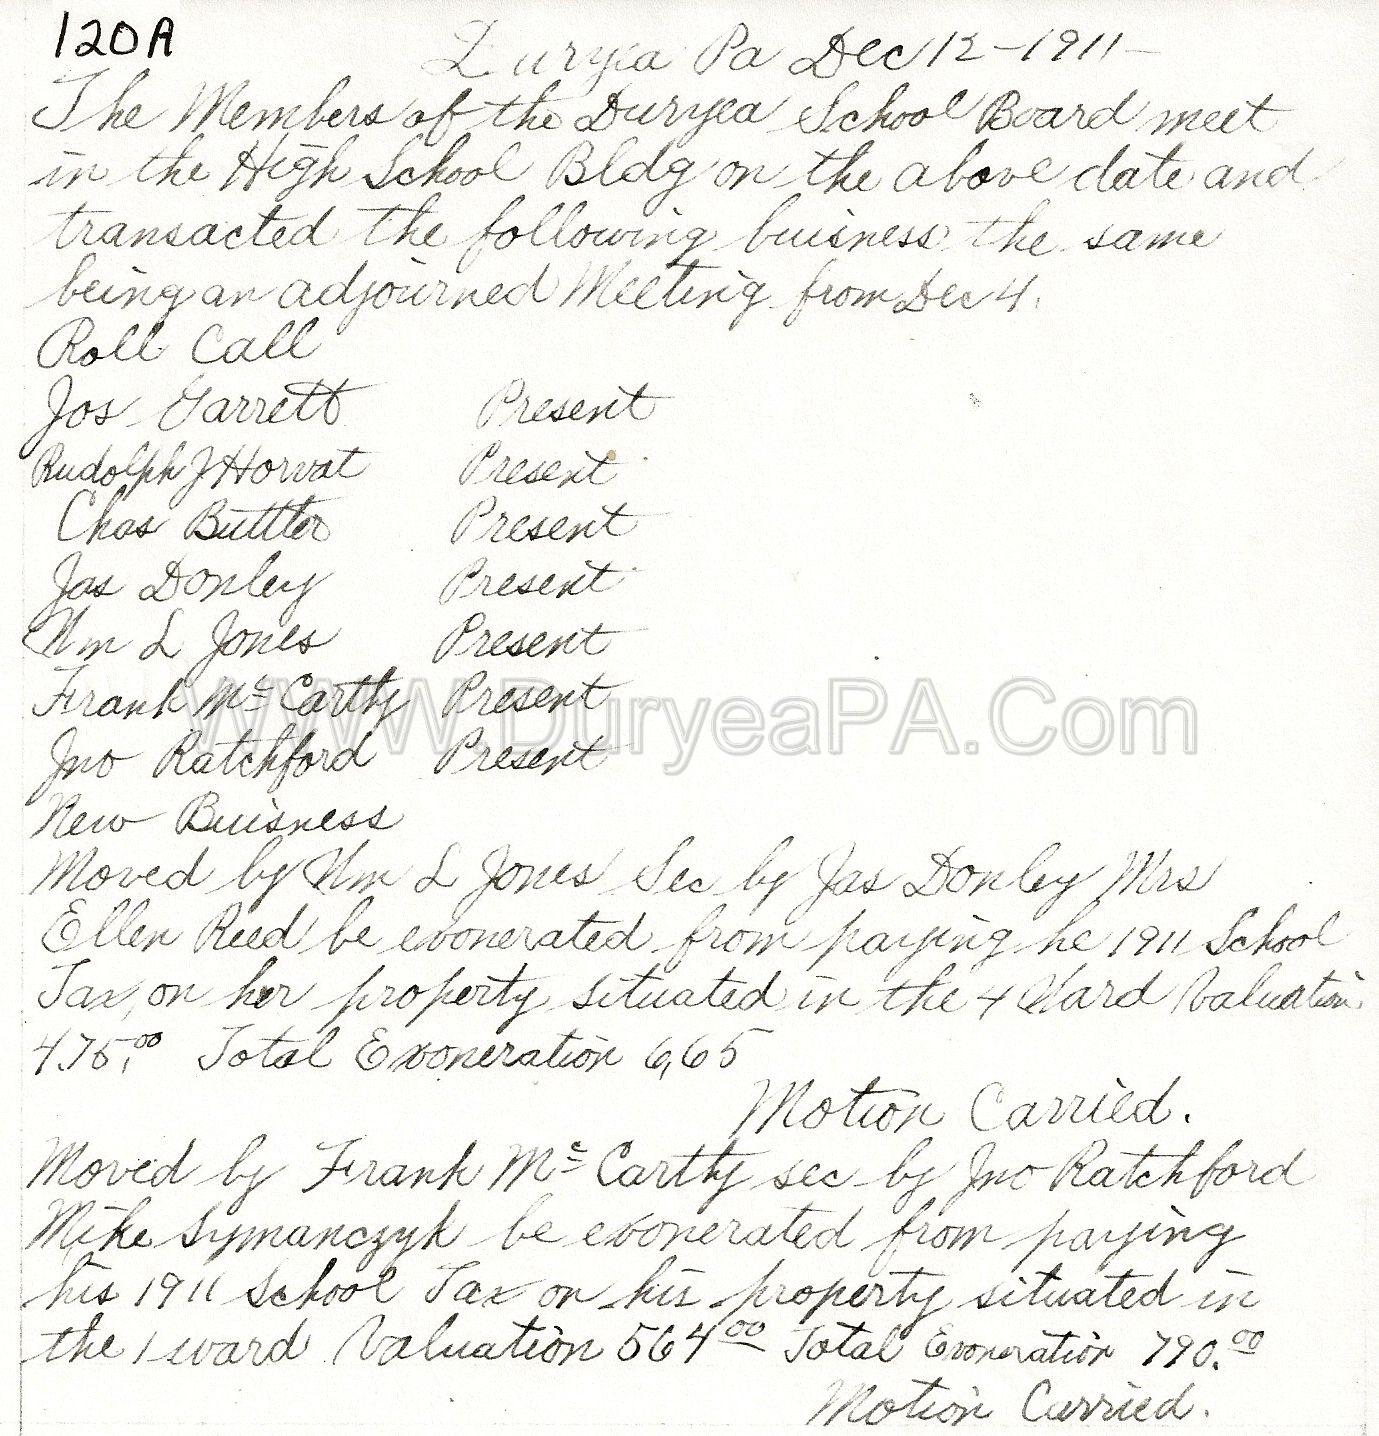 120A
Duryea Pa Dec 12-1911-
The Members of the Duryea School Board meet
in the High School Bldg on the above date and
transacted the following buisness the same
being an adjourned Meeting from Dec 4.
Roll Call
Jos Garrett Present
Rudolph J Horvat Present
Chas Buttler Present
Jas Donley Present
Wm L Jones Present
Frank Mc Carthy Present
Jno Ratchford Present
www.DuryeaPA.Com
New Buisness
Moved by Wm L Jones Sec by Jas Donley Mrs
Ellen Reed be exonerated from paying he 1911 School
Tax on her property situated in the 4 Ward Valuation
475.00 Total Exoneration 6,65
Motion Carried.
Moved by Frank Mc Carthy sec by Jno Ratchford
Mike Symanczyk be exonerated from paying
his 1911 School Tax on his property situated in
the 1 ward Valuation 564 00 Total Exoneration 790.00
Motion Carried.